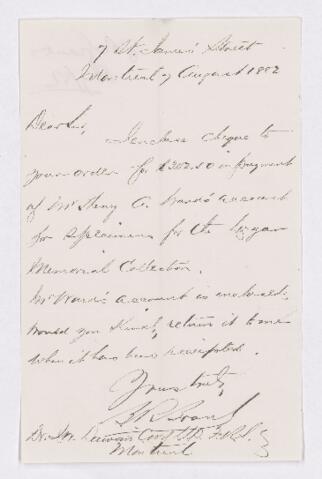 7 St. James Street
Montreal 7 August 1882
Dear Sir,
I enclose cheque to
your order for $202.50 in payment
of Mr Henry A. Ward's account
for specimens for the Logan
Memorial Collection.
Mr Ward's account is enclosed;
would you kindly return it to me
when it has been receipted.
Yours truly,
Dr. J. W. Dawson LL.D. F.R.S.
Montreal